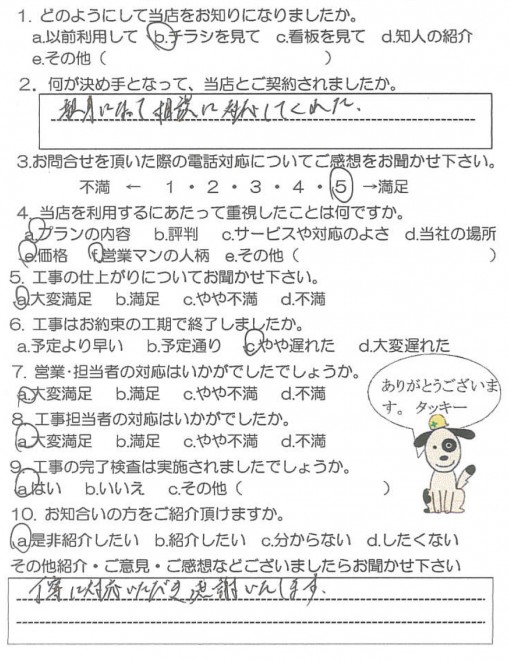 1. どのようにして当店をお知りになりましたか。
a.以前利用して b.チラシを見て c.看板を見て d.知人の紹介
e.その他（ ）
2. 何が決め手となって、当店とご契約されましたか。
親身になって相談に対応してくれた。
3.お問合せを頂いた際の電話対応についてご感想をお聞かせ下さい。
不満 ← 1・2・3・4・5 →満足
4. 当店を利用するにあたって重視したことは何ですか。
a.プランの内容 b.評判 c.サービスや対応のよさ d.当社の場所
e.価格 f.営業マンの人柄 e.その他（ ）
5. 工事の仕上がりについてお聞かせ下さい。
a.大変満足 b.満足 c.やや不満 d.不満
6. 工事はお約束の工期で終了しましたか。
a.予定より早い b.予定通り c.やや遅れた d.大変遅れた
7. 営業・担当者の対応はいかがでしたでしょうか。
a.大変満足 b.満足 c.やや不満 d.不満
8. 工事担当者の対応はいかがでしたか。
a.大変満足 b.満足 c.やや不満 d.不満
ありがとうございま
す。 タッキー
9. 工事の完了検査は実施されましたでしょうか。
a.はい b.いいえ c.その他（ ）
10. お知合いの方をご紹介頂けますか。
a.是非紹介したい b.紹介したい c.分からない d.したくない
その他紹介・ご意見・ご感想などございましたらお聞かせ下さい
丁寧に対応いただき感謝いたします。